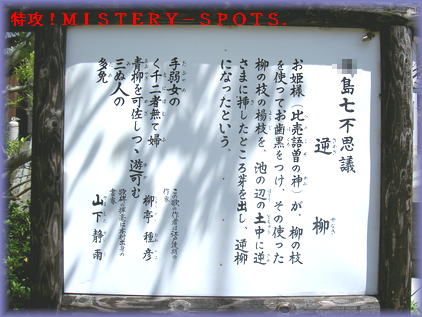 特攻!MISTERY SPOTS.
島七不思議
逆柳
お姫様(比売語曽の神)が、柳の枝
を使ってお歯黒をつけ、その使った
柳の枝の楊枝を、池の辺の土中に逆
さまに挿したところ芽を出し、逆柳
になったという。
手弱女の
く千二者無て婦
青柳を可佐しつゝ遊可む
三ぬ人の
多免
柳亭種彦
この歌の作者は江戸後期の
作家
山下静雨